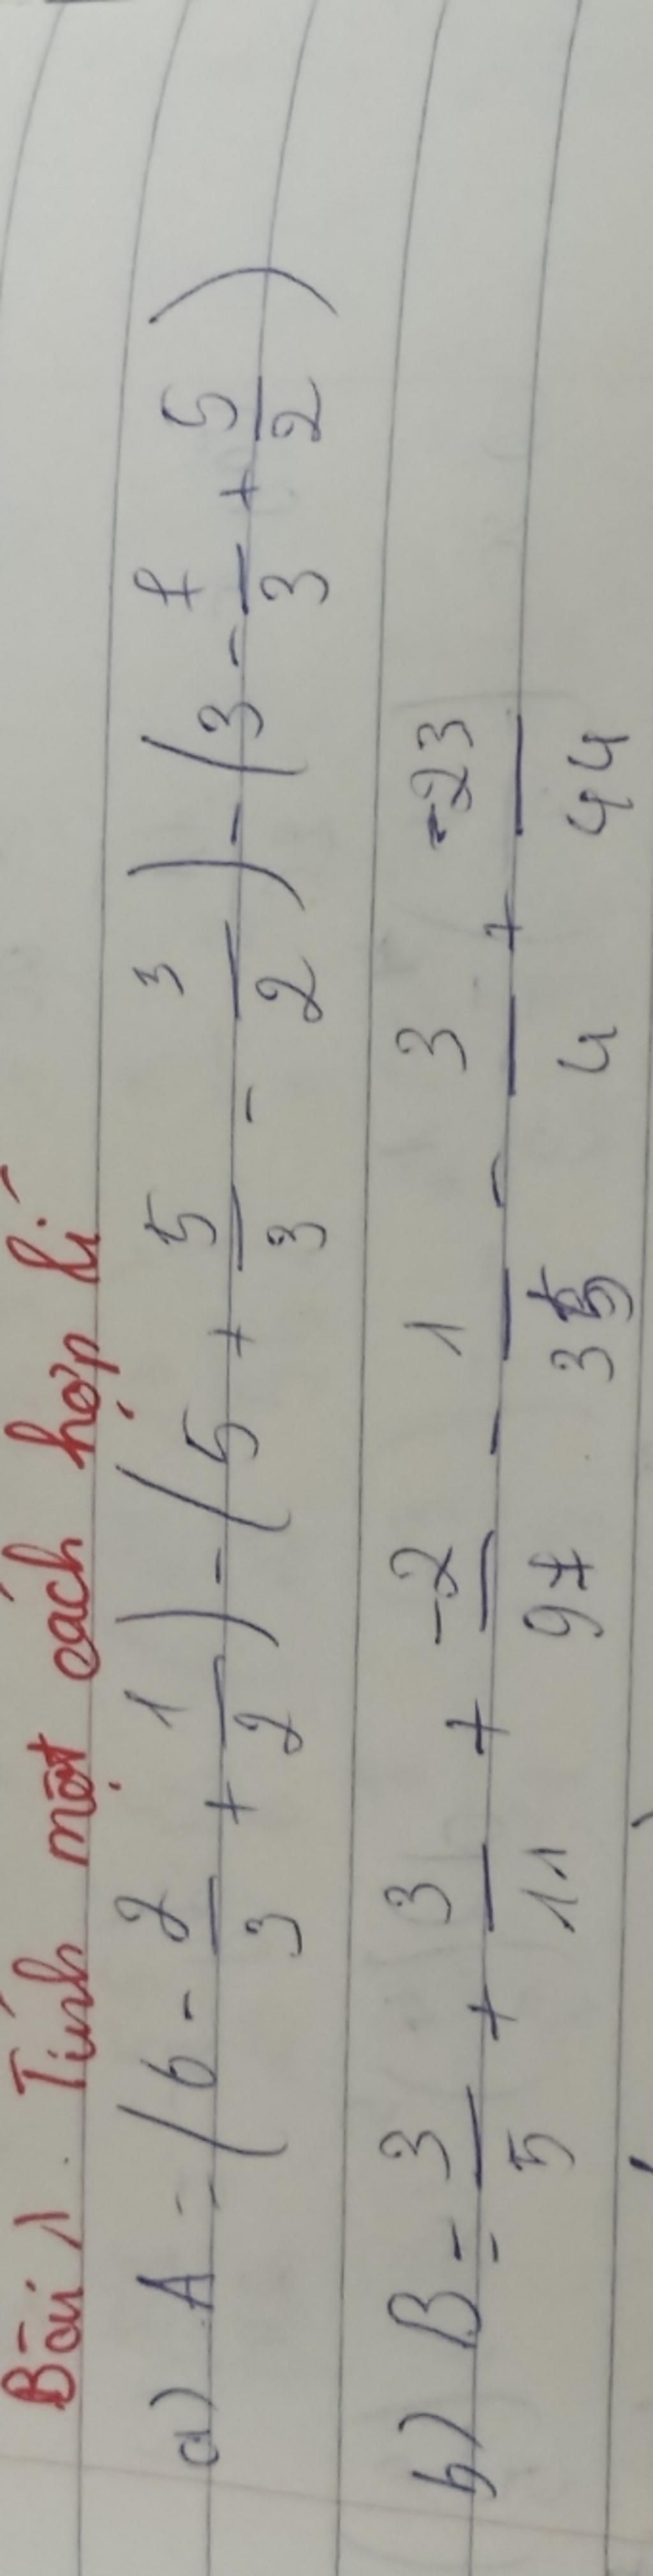 Bài 1. Tính một cách hợp lí
a) A = (6 - 2/3 + 1/2) - (5 + 5/3 - 3/2) - (3 - 7/3 + 5/2)
b) B = 3/5 + 3/11 + -2/97 - 1/35 - 3/4 + -23/44